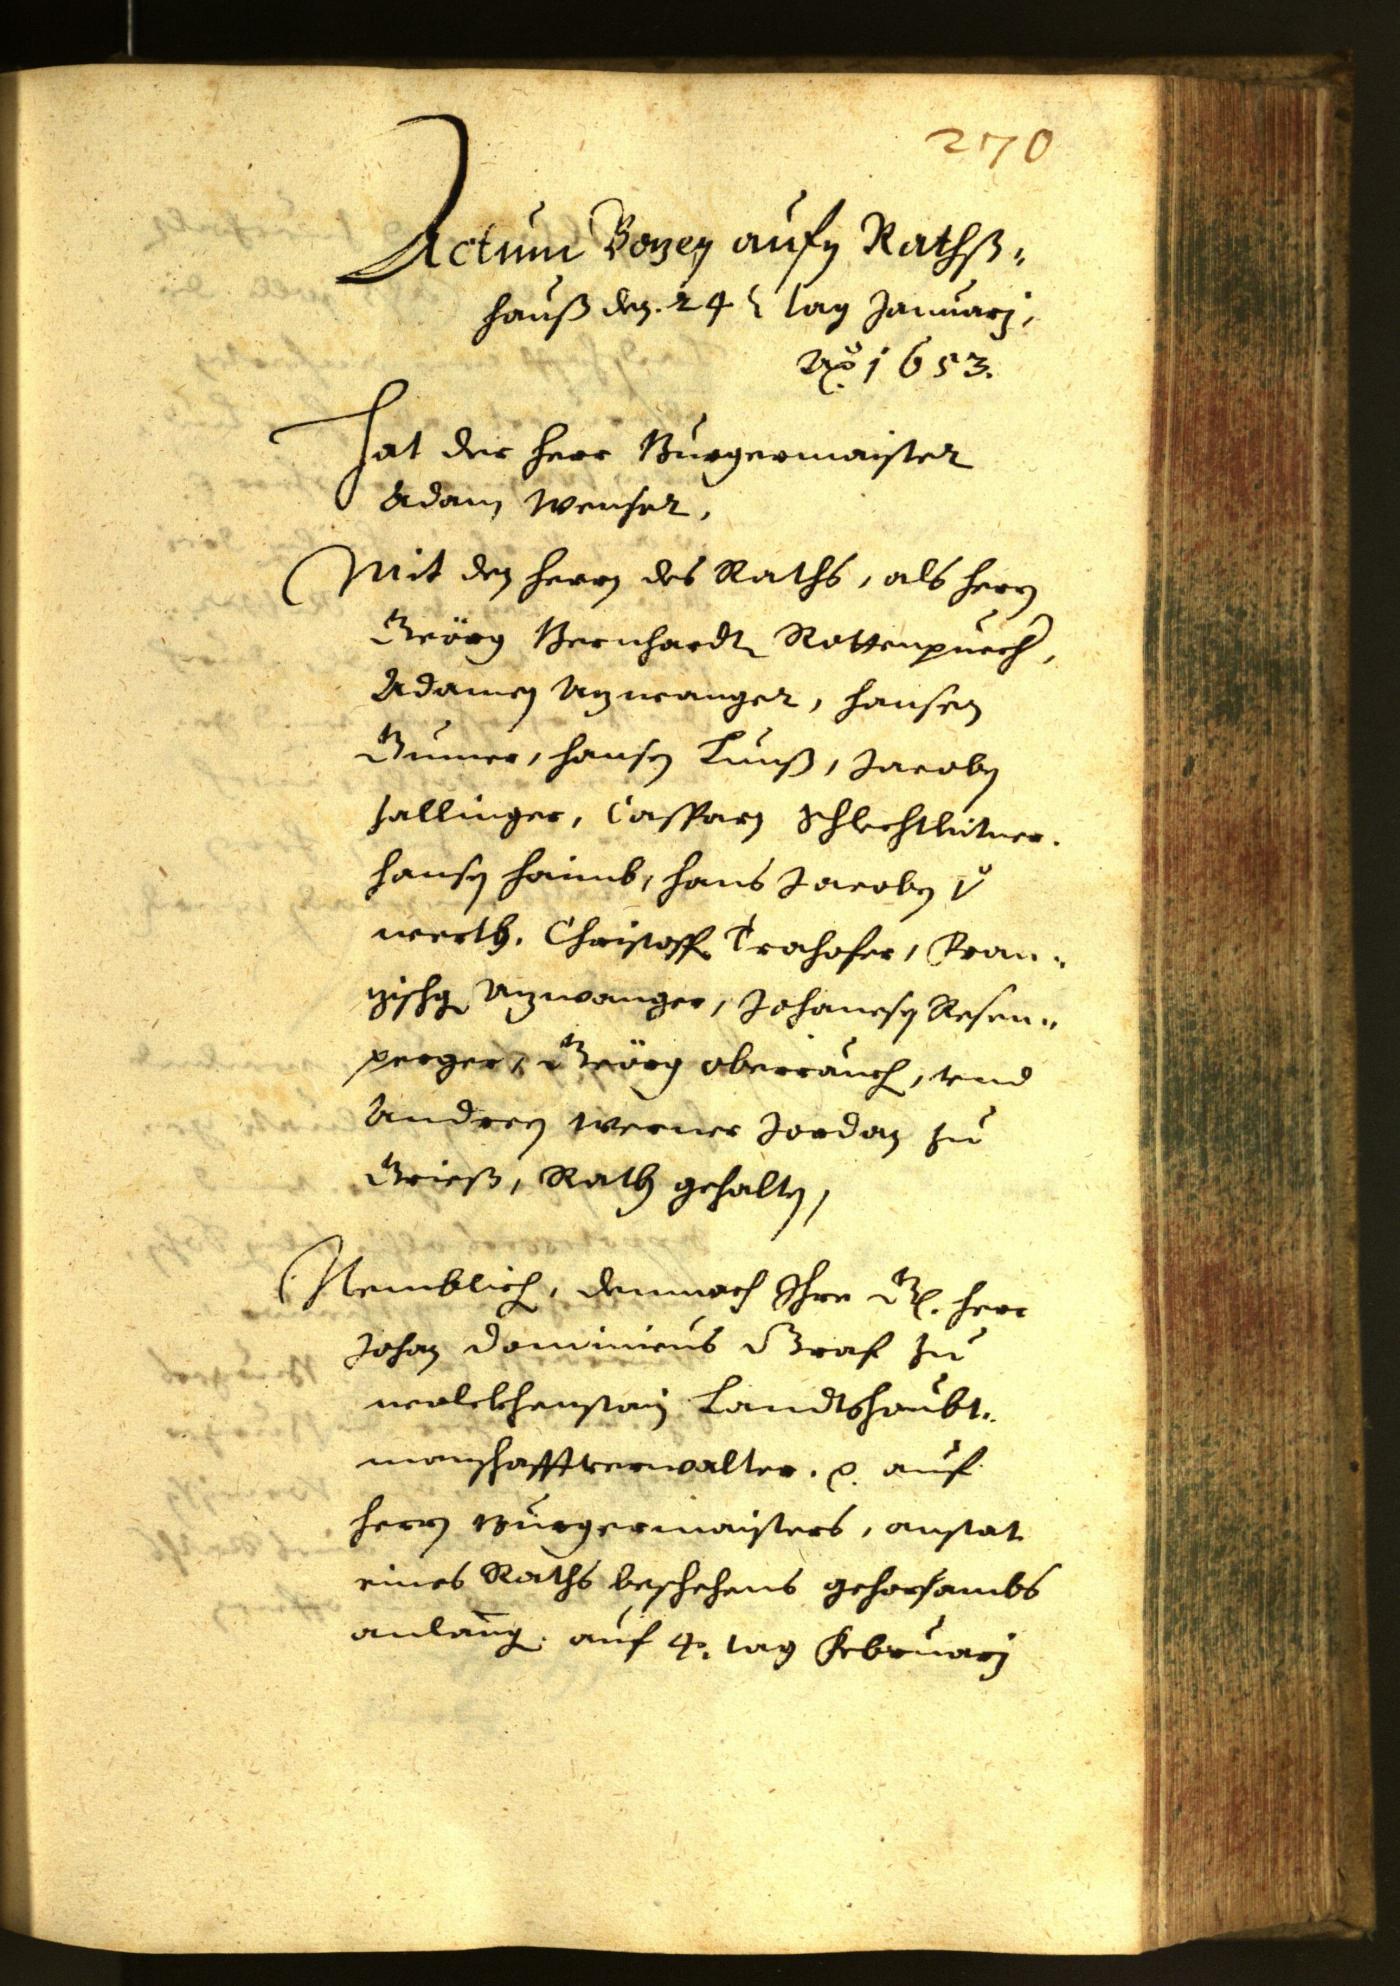 270
Actum Bozen aufn Rathß-
hauß den. 24 tag Januarj,
Ao. 1653.
Hat der Herr Burgermaister
Adam Wenser,
Mit den Herrn des Raths, als Herrn
Geörg Bernhardt Rottenpuech,
Adamen Azwanger, Hansen
Gumer, Hansen Lutz, Jacoben
Hallinger, Casparn Schlechtleitner.
Hansen Haimb, Hans Jacoben v
werth. Christoff Trohofer, Fran-
zischg Azwanger, Johanesn Resen-
perger, Geörg Oberrauch, vnd
Andreen Werner Jordan zu
Grieß, Rath gehalten,
Nemblich, demnach Ihre G. Herr
Johan Dominicus Graf zu
wolckhenstain Landtshaubt-
manschafftverwalter. auf
Herrn Burgermaisters, anstat
eines Raths beschehens gehorsambs
anlang. auf 4. tag Februarj